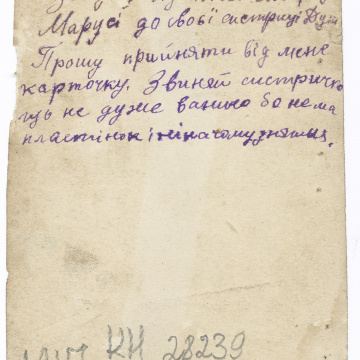 Марусі до своєї систриці Дуні
Прошу прийняти від мене
карточку. Звиняй систричко
що не дуже важно бо нема
пластінок і ні на чому знятця.
КН 28239